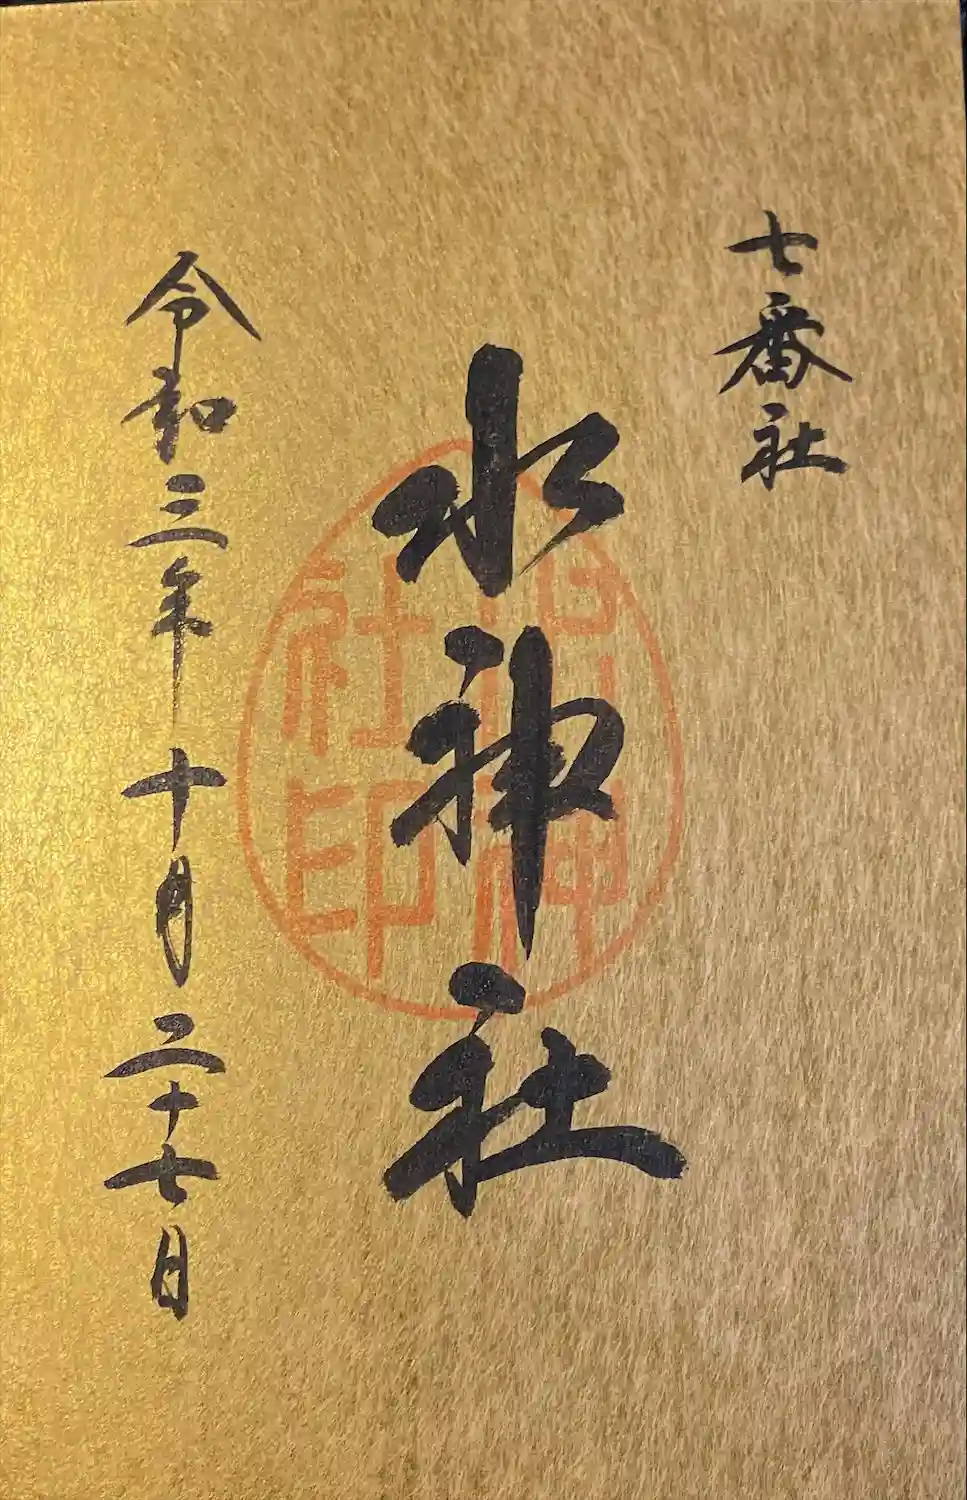 七番社
水神社
令和三年十月二十七日
社印